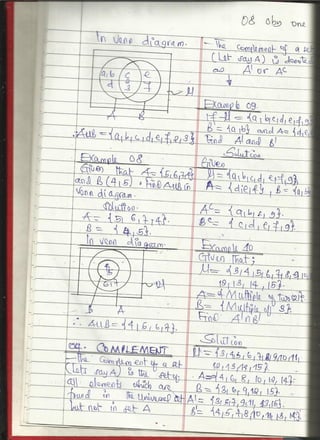 08 Oby One
In Venn diagram.
a, b
d
c
g
e
f
µ
A
B
∴ AUB = {a, b, c, d, e, f, g}
Example 08
Given that A = {5, 6, 7, 4}
and B {4, 5}. Find AUB in
Venn diagram.
Solution
A = {5, 6, 7, 4}.
B = {4, 5}.
In Venn diagram
6, 7
µ
B
A
∴ AUB = {4, 5, 6, 7}.
04. COMPLEMENT
- The Complement of a set
(Let say A) is the set of
all elements which are
found in the Universal set
but not in set A
- The complement of a set
(Let say A) is denoted
as A' or Aᶜ
Example 09.
If µ = {a, b, c, d, e, f, g}
B = {a, b} and A = {d, e,
Find A' and B'
Solution
Given
µ = {a, b, c, d, e, f, g}
A = {d, e, f}, B = {a, b}
Aᶜ = {a, b, c, g}.
Bᶜ = {c, d, e, f, g}.
Example 10
Given That;
µ = {3, 4, 5, 6, 7, 8, 9, 10
12, 13, 14, 15}.
A = {Multiple of two}
B = {Multiple of 3}
Find A'∩B'
Solution
µ = {3, 4, 5, 6, 7, 8, 9, 10, 11,
12, 13, 14, 15}
A = {4, 6, 8, 10, 12, 14}.
B = {3, 6, 9, 12, 15}
A' = {3, 5, 7, 9, 11, 13, 15}.
B' = {4, 5, 7, 8, 10, 11, 13, 14}